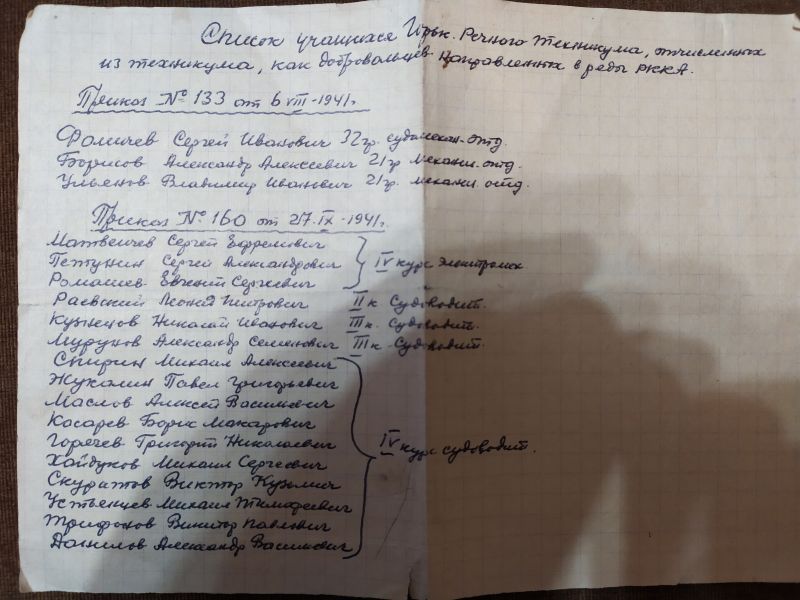 Список учащихся Горьк. Речного Техникума, отчисленных
из техникума, как добровольцев направленных в ряды РККА.
Приказ № 133 от 6 VIII-1941г.
Фомичев Сергей Иванович 32гр. судомехан. отд.
Борисов Александр Алексеевич 21гр механич. отд.
Ульянов Владимир Иванович 21гр. механич. отд.
Приказ № 160 от 27-IX-1941г.
Матвеичев Сергей Ефремович
Петунин Сергей Александрович IV курс Электромех
Ромашев Евгений Сергеевич
Раевский Леонид Дмитрович II к Судоводит.
Кузнецов Николай Иванович III к. Судоводит.
Мурунов Александр Семенович III к Судоводит.
Спирин Михаил Алексеевич
Жукалин Павел Григорьевич
Маслов Алексей Васильевич
Косарев Борис Макарович
Горячев Григорий Николаевич IV курс судоводит.
Хайдуков Михаил Сергеевич
Скуратов Виктор Кузьмич
Устьенцев Михаил Тимофеевич
Трифонов Виктор Павлович
Данилов Александр Васильевич